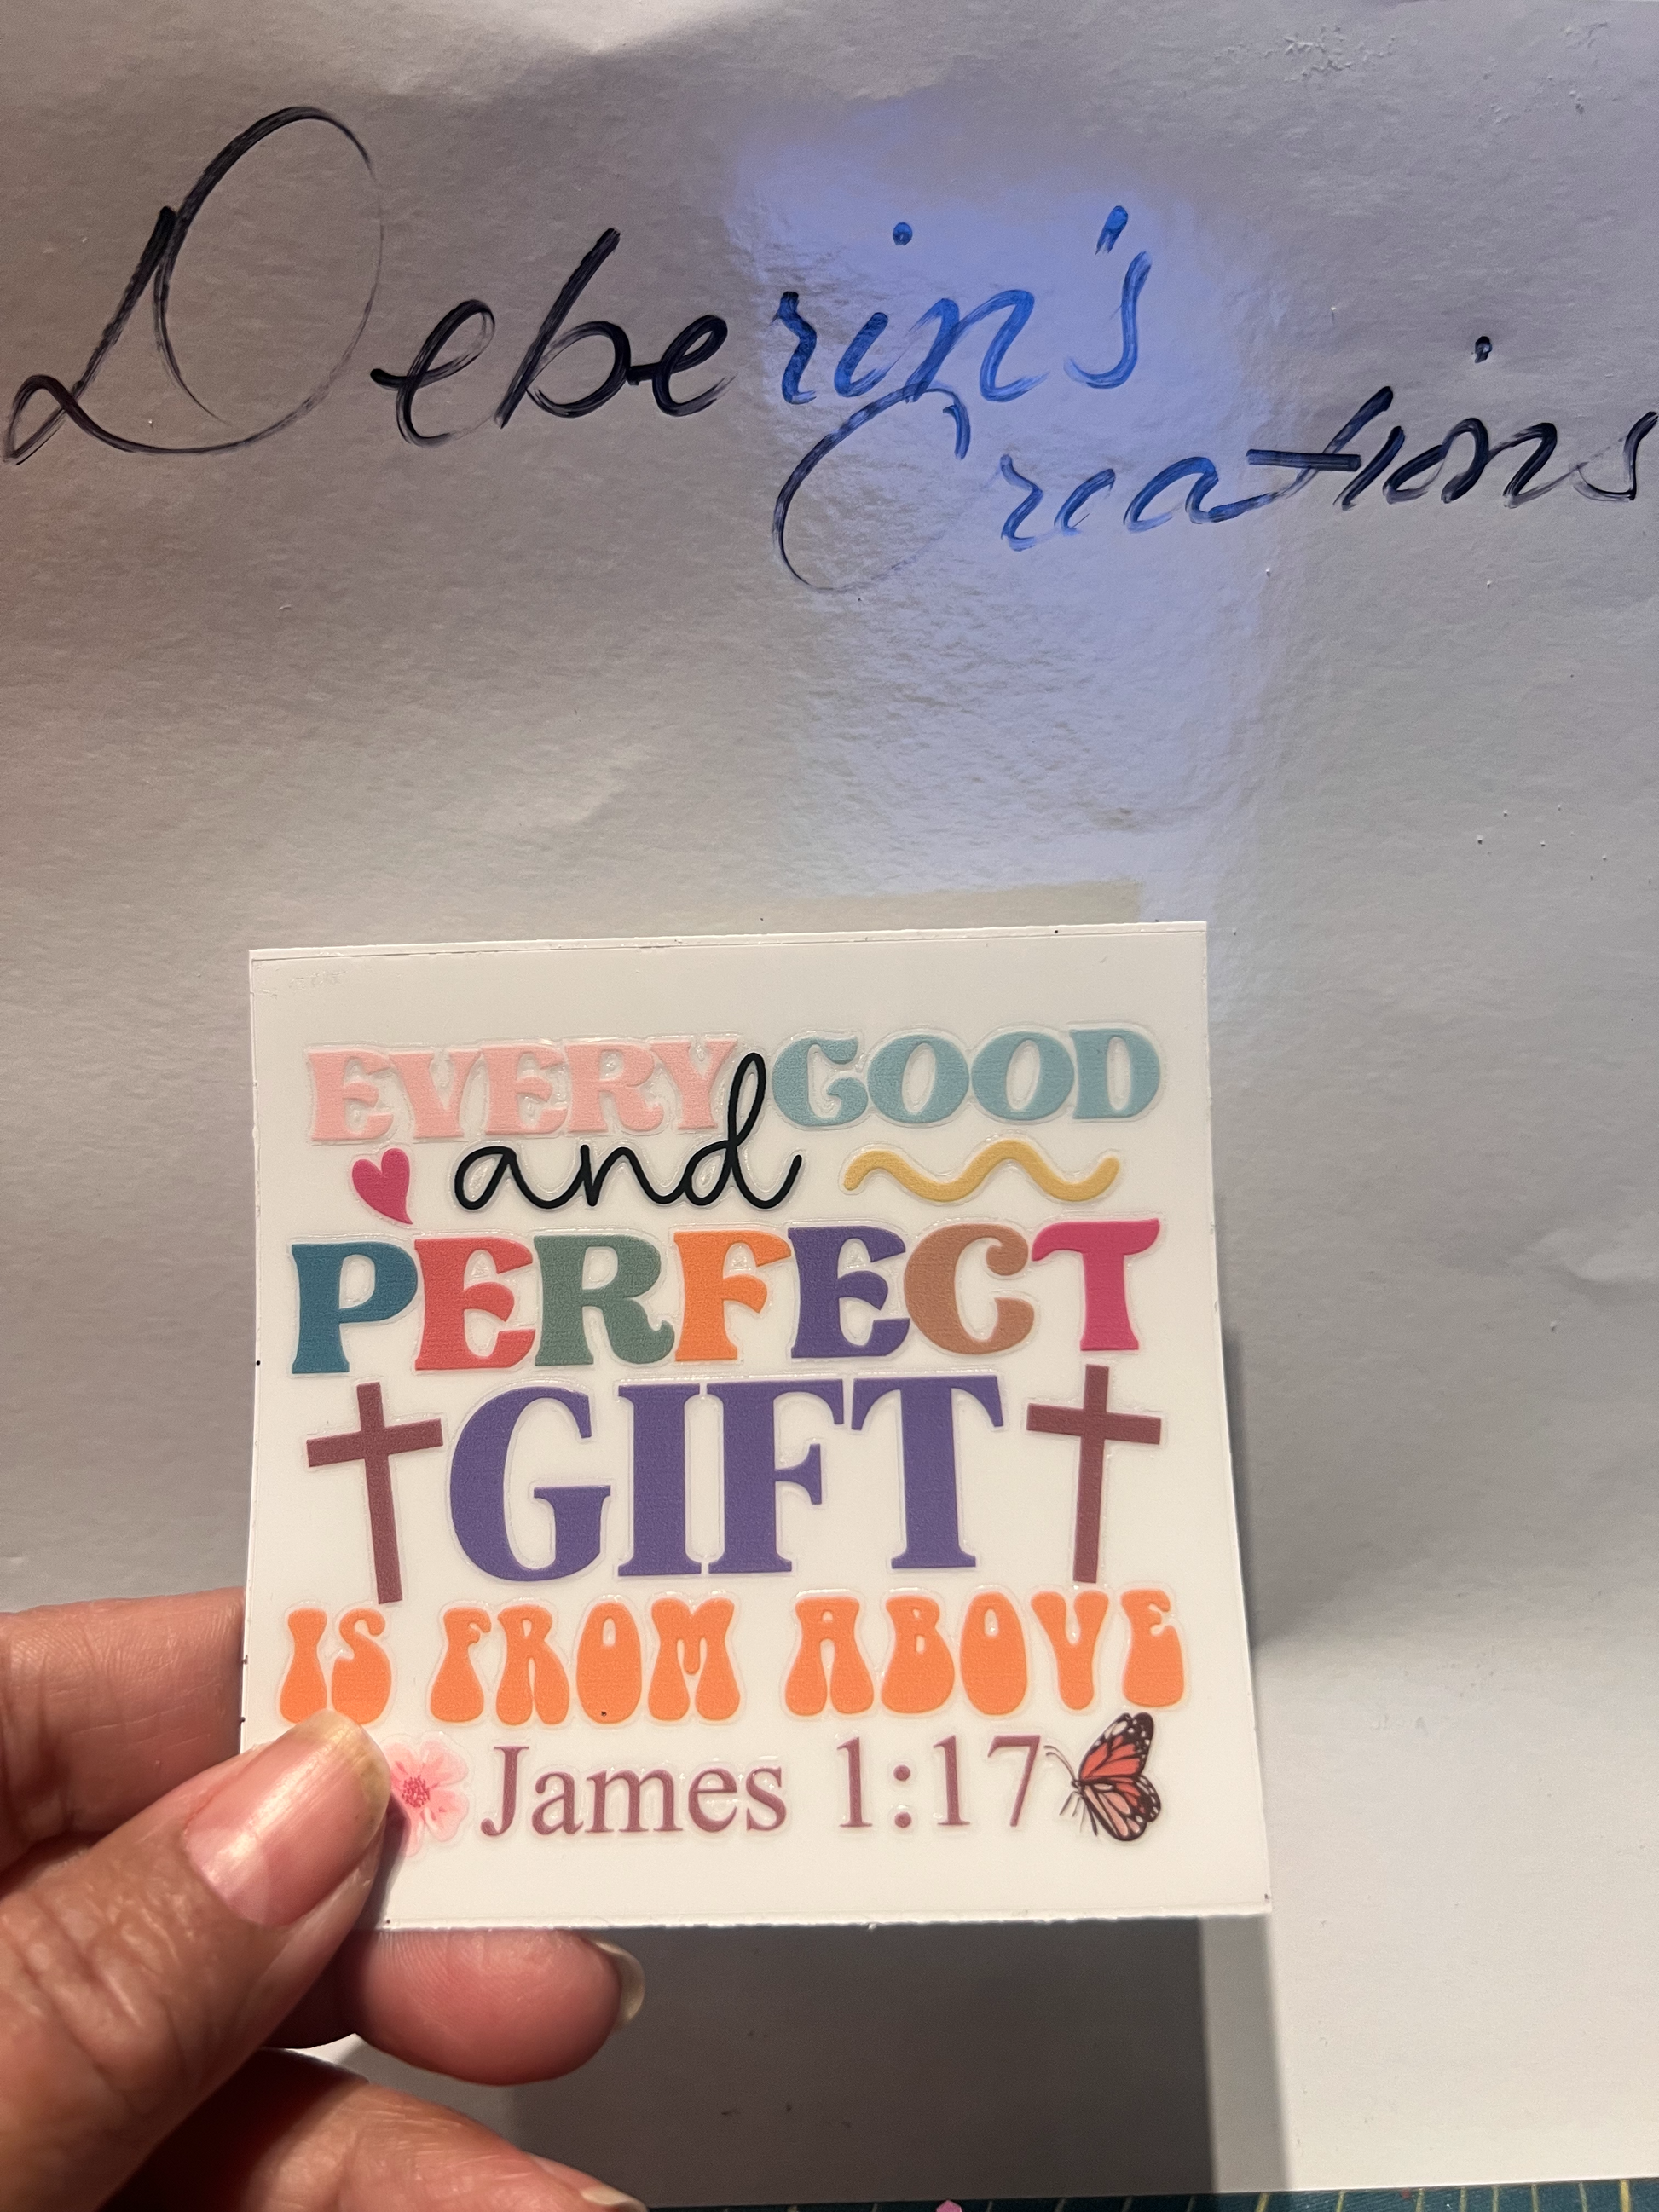 Deberin's
Creations
EVERY GOOD
and
PERFECT
GIFT
IS FROM ABOVE
James 1:17